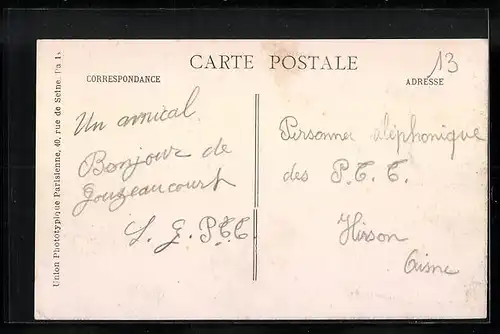 CARTE POSTALE
13
CORRESPONDANCE
ADRESSE
Union Phototypique Parisienne, 40, rue de Seine, Pa
Un amical
Bonjour de
Gouzeaucourt
P.T.T.
Personnel téléphonique
des P.T.T.
Hirson
Aisne